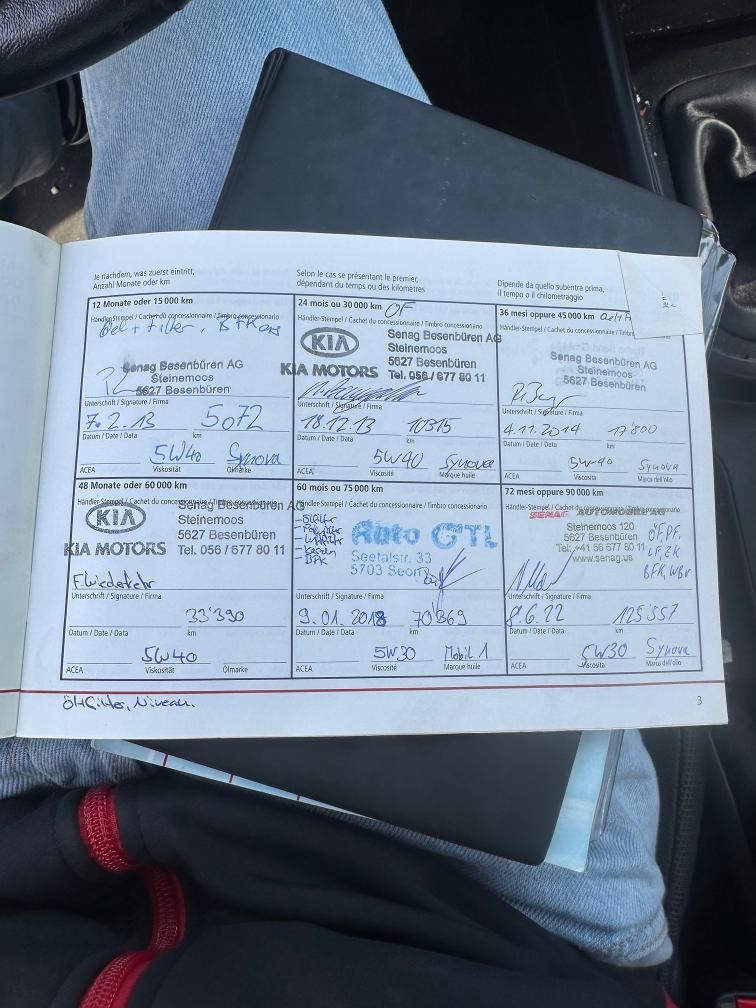 Je nachdem, was zuerst eintritt,
Anzahl Monate oder km
Selon le cas se présentant le premier,
dépendant du temps ou des kilomètres
Dipende da quello subentra prima,
il tempo o il chilometraggio
12 Monate oder 15 000 km
Händler-Stempel / Cachet du concessionnaire / Timbro concessionario
Oel + Filter, BFK
Senag Besenbüren AG
Steinemoos
5627 Besenbüren
Unterschrift / Signature / Firma
7.2.13 5072
Datum / Date / Data km
5W40 Synova
ACEA Viskosität Ölmarke
24 mois ou 30 000 km OF
Händler-Stempel / Cachet du concessionnaire / Timbro concessionario
KIA
KIA MOTORS
Senag Besenbüren AG
Steinemoos
5627 Besenbüren
Tel. 056 / 677 80 11
Unterschrift / Signature / Firma
18.12.13 10315
Datum / Date / Data km
5W40 Synova
ACEA Viscosité Marque huile
36 mesi oppure 45 000 km
Händler-Stempel / Cachet du concessionnaire / Timbro
Senag Besenbüren AG
Steinemoos
5627 Besenbüren
Unterschrift / Signature / Firma
4.11.2014 17'800
Datum / Date / Data km
5W-40 Synova
ACEA Viscosita Marca dell'olio
48 Monate oder 60 000 km
Händler-Stempel / Cachet du concessionnaire / Timbro concessionario
KIA
KIA MOTORS
Senag Besenbüren AG
Steinemoos
5627 Besenbüren
Tel. 056 / 677 80 11
Unterschrift / Signature / Firma
33'390
Datum / Date / Data km
5W40
ACEA Viskosität Ölmarke
60 mois ou 75 000 km
Händler-Stempel / Cachet du concessionnaire / Timbro concessionario
Auto GTL
Seetalstr. 33
5703 Seon
Unterschrift / Signature / Firma
9.01.2018 70'369
Datum / Date / Data km
5W30 Mobil 1
ACEA Viscosité Marque huile
72 mesi oppure 90 000 km
Händler-Stempel / Cachet du concessionnaire / Timbro concessionario
SENAG AUTOMOBILE AG
Steinemoos 120
5627 Besenbüren
Tel: +41 56 677 80 11
www.senag.us
ÖF, PF,
LF, ZK
BFK, WBV
Unterschrift / Signature / Firma
8.6.22 125'557
Datum / Date / Data km
5W30 Synova
ACEA Viscosita Marca dell'olio
Öl+Filter, Niveau.
3